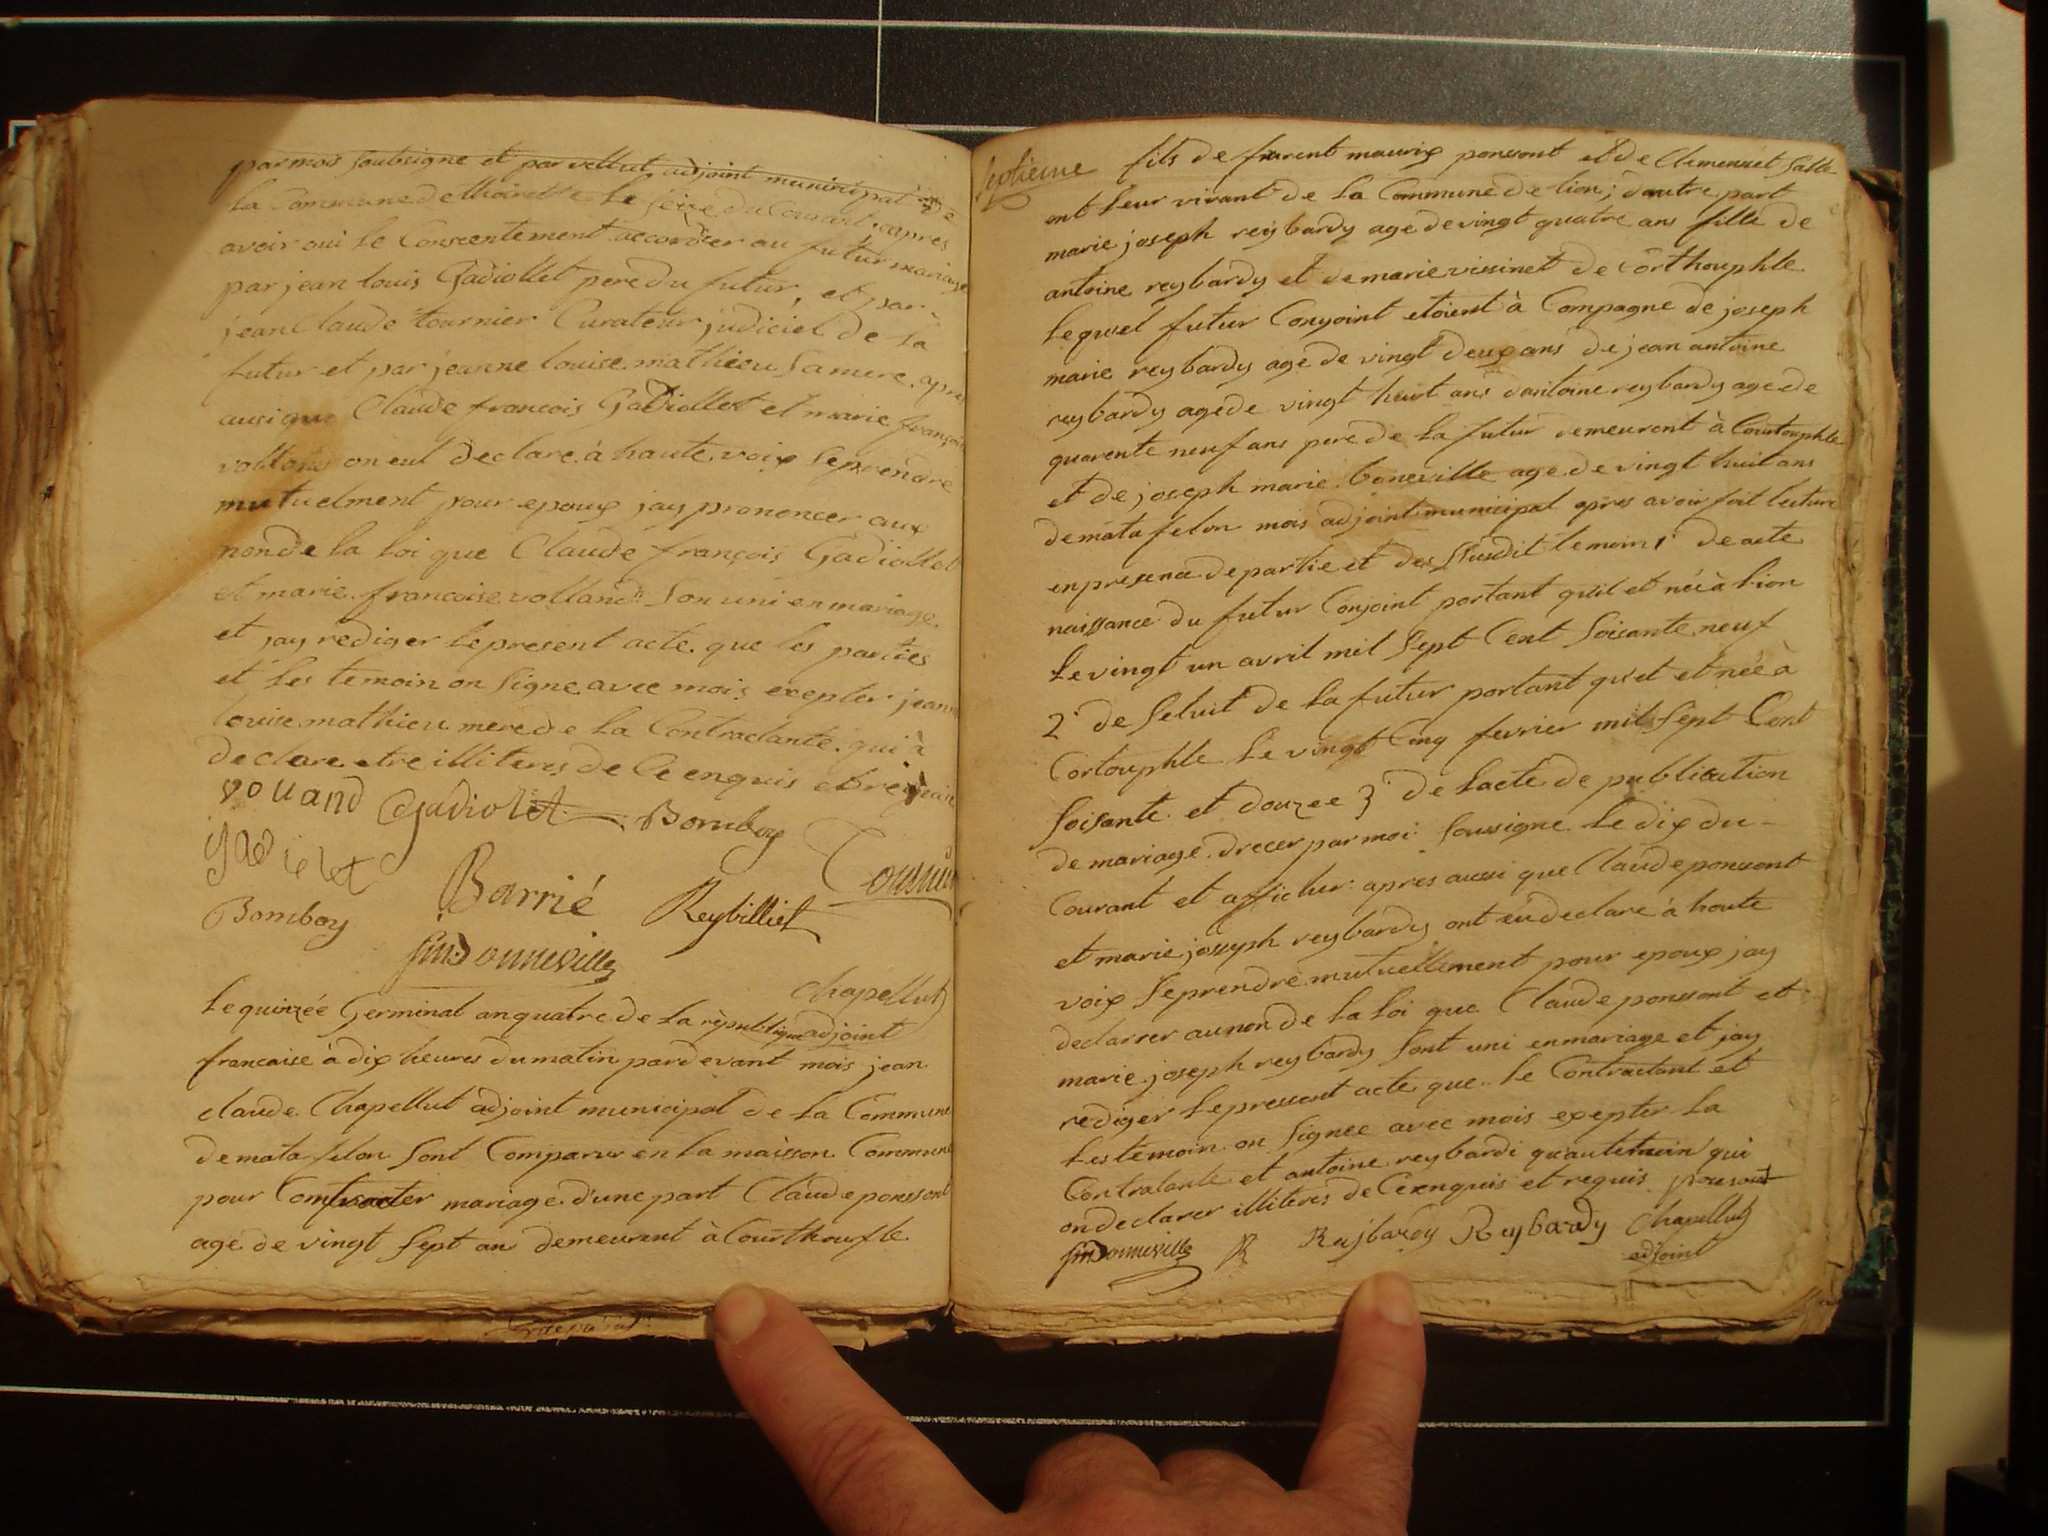 par mois soubsigne et par vellut adjoint municipal de
la Commune de thoirette le seize du Courant, apres
avoir oui le Consentement accordèer au futur mariage
par jean louis Gadiollet pere du futur, et par
jean Claude tournier Curateur judiciel de la
futur et par jeanne louise mathieu sa mere, apres
aussi que Claude francois Gadiollet et marie françois
volland on eut declare à haute voix se prendre
mutuelment pour epoux jay prononcer aux
non de la loi que Claude françois Gadiollet
et marie francoise volland son uni en mariage
et jay rediger le present acte que les parties
et les temoin on signe avec mois exepter jeanne
louise mathieu mere de la Contractante qui à
declare etre illiteres de Ce enquis et
vouand Gadiolet Bomboy
gadiolet
Bomboy Barrié Reybilliet
Chapellut
adjoint
le quinzée Germinal an quatre de la republique
francaise à dix heures du matin pardevant mois jean
claude Chapellut adjoint municipal de la Commune
de matafelon sont Comparus en la maisson Commune
pour Contracter mariage d'une part Claude ponssont
age de vingt sept an demeurant à Courthoufle
septieme
fils de maurix ponsont et de Clemencet
ont leur vivant de la Commune de lion; dautre part
marie joseph reybardy age de vingt quatre ans fille de
antoine reybardy et de marie vissinet de Corthouphle
lequel futur Conjoint etoient à Compagne de joseph
marie reybardy age de vingt deux ans de jean antoine
reybardy age de vingt huit ans dantoine reybardy age de
quarente neuf ans pere de la futur demeurent à Courtouphle
et de joseph marie boneville age de vingt huit ans
de matafelon mois adjoint municipal apres avoir fait lecture
en presence de partie et des susdit temoin 1° de acte
naissance du futur Conjoint portant qu'il et née à lion
le vingt un avril mil sept Cent soisante neuf
2° de seluit de la futur portant qu'et et née à
Cortouphle le vingt Cinq fevrier mil sept Cent
soisante et douzee 3° de lacte de publication
de mariage drecer par moi soussigne le dix du
Courant et afficher apres aussi que Claude ponsont
et marie joseph reybardy ont eu declare à haute
voix se prendre mutuellement pour epoux jay
declarrer au non de la loi que Claude ponsont et
marie joseph reybardy sont uni en mariage et jay
rediger le pressent acte que le Contractant et
les temoin on signee avec mois exepter la
Contratante et antoine reybardi qu'au temoin qui
on declarer illiteres de Ce enquis et requis ponsont
R Rejbardy Reybardy Chapellut
adjoint